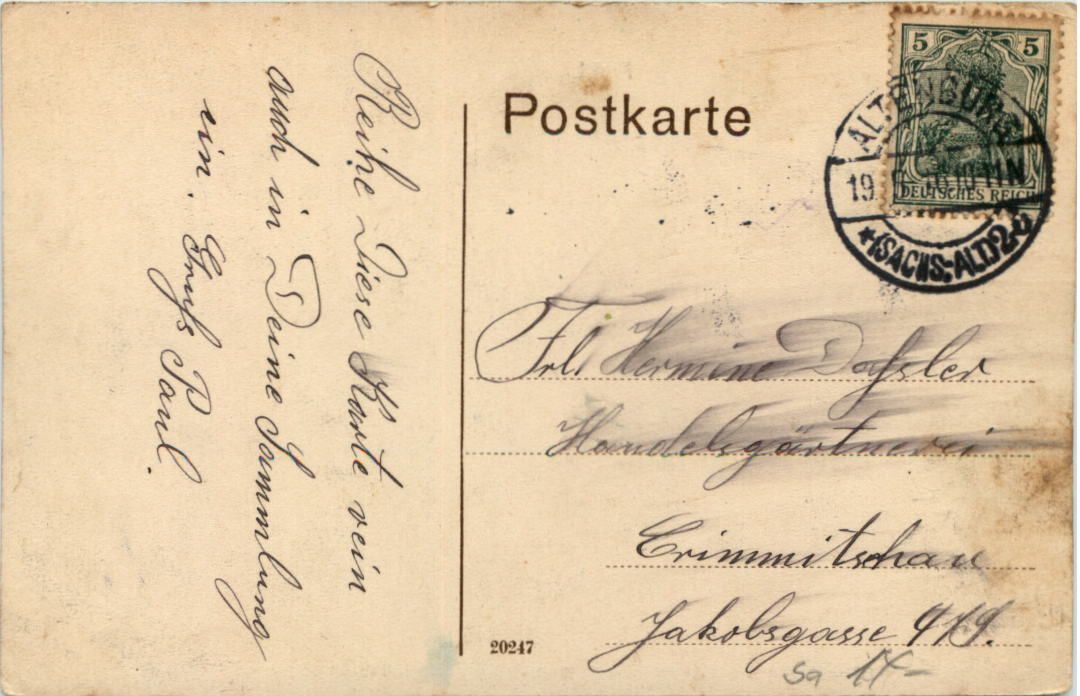 Reihe Diese Karte rein
auch in Deine Sammlung
ein. Gruß Paul.
Postkarte
5 5
DEUTSCHES REICH
ALTENBURG
19 10-11 N
*(SACHS:-ALT.)2
Frl. Hermine Daßler
Handelsgärtnerei
Crimmitschau
Jakobsgasse 419.
20247
Sa 14-